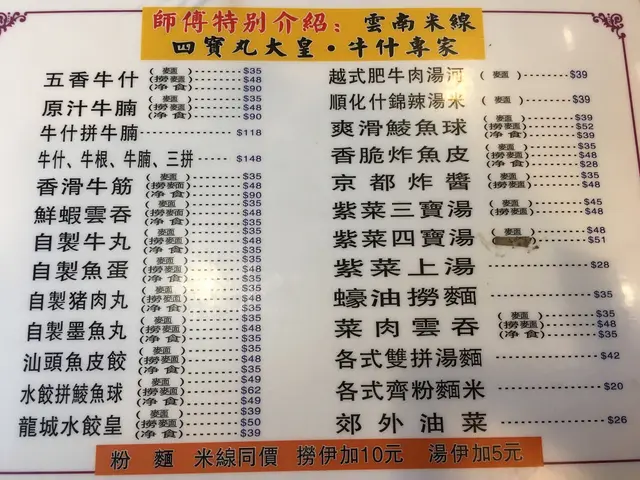 師傅特別介紹：雲南米線
四寶丸大皇·牛什專家
五香牛什 (麵) $35
(撈麵) $48
(净食) $90
原汁牛腩 (麵) $35
(撈麵) $48
(净食) $90
牛什拼牛腩 $118
牛什、牛根、牛腩、三拼 $148
香滑牛筋 (麵) $35
(撈麵) $48
(净食) $90
鮮蝦雲吞 (麵) $35
(撈麵) $48
(净食) $35
自製牛丸 (麵) $35
(撈麵) $48
(净食) $35
自製魚蛋 (麵) $35
(撈麵) $48
(净食) $35
自製猪肉丸 (麵) $35
(撈麵) $48
(净食) $35
自製墨魚丸 (麵) $35
(撈麵) $48
(净食) $35
汕頭魚皮餃 (麵) $35
(撈麵) $48
(净食) $35
水餃拼鯪魚球 (麵) $49
(撈麵) $62
(净食) $49
龍城水餃皇 (麵) $39
(撈麵) $50
(净食) $39
越式肥牛肉湯河 (麵) $39
順化什錦辣湯米 (麵) $39
爽滑鯪魚球 (麵) $39
(撈麵) $52
(净食) $39
香脆炸魚皮 (麵) $35
(撈麵) $48
(净食) $28
京都炸醬 (麵) $35
(撈麵) $48
紫菜三寶湯 (麵) $45
(撈麵) $48
紫菜四寶湯 (麵) $48
$51
紫菜上湯 $28
蠔油撈麵 $35
菜肉雲吞 (麵) $35
(撈麵) $48
(净食) $35
各式雙拼湯麵 $42
各式齊粉麵米 $20
郊外油菜 $26
粉 麵 米線同價 撈伊加10元 湯伊加5元